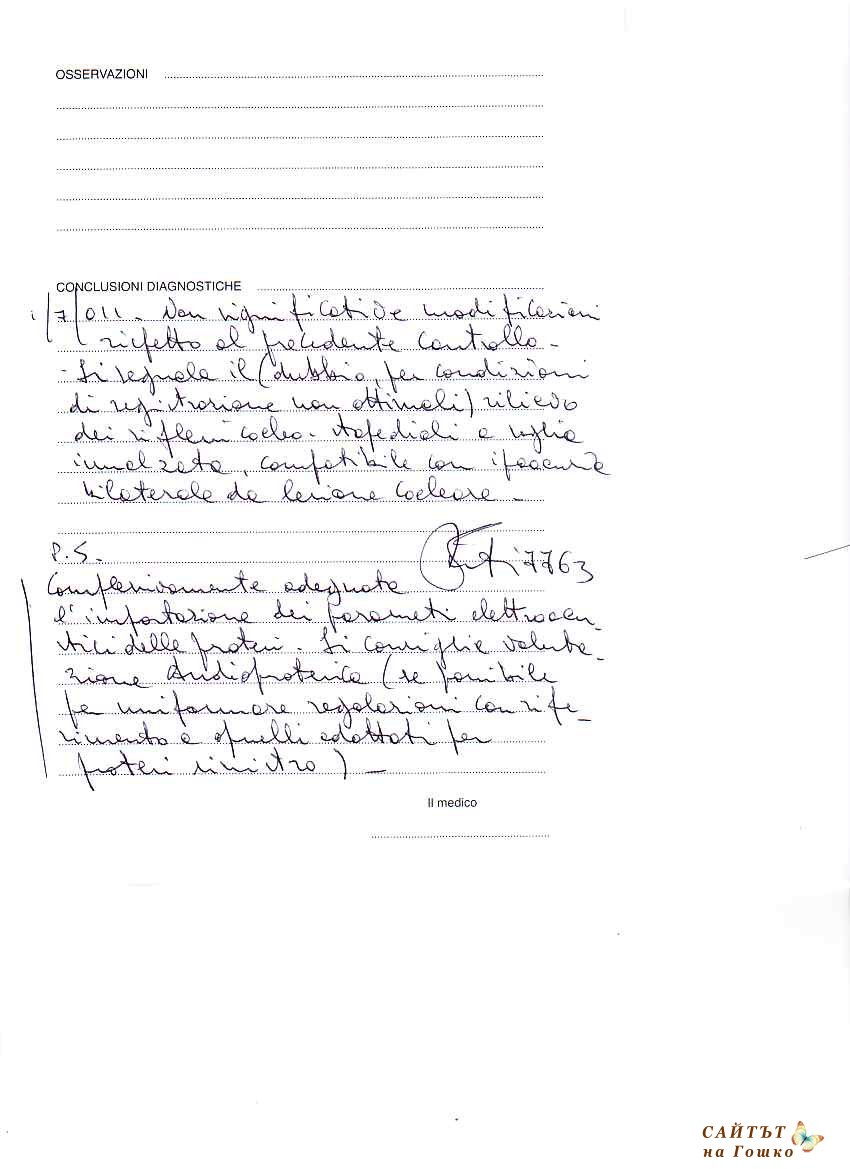 OSSERVAZIONI
CONCLUSIONI DIAGNOSTICHE
1/7/011 - Non significative modificazioni
rispetto al precedente controllo -
- Si segnala il (dubbio, per condizioni
di registrazione non ottimali) rilievo
dei riflessi cocleo-stapediali a soglia
innalzata, compatibile con ipoacusia
bilaterale da lesione cocleare -
P.S. 7763
Complessivamente adeguata
l'impostazione dei parametri elettroacu-
stici delle protesi. Si consiglia valuta-
zione Audioprotesica (se possibile
per uniformare regolazioni con rife-
rimento a quelli adottati per
protesi sinistra) -
Il medico
САЙТЪТ
на Гошко